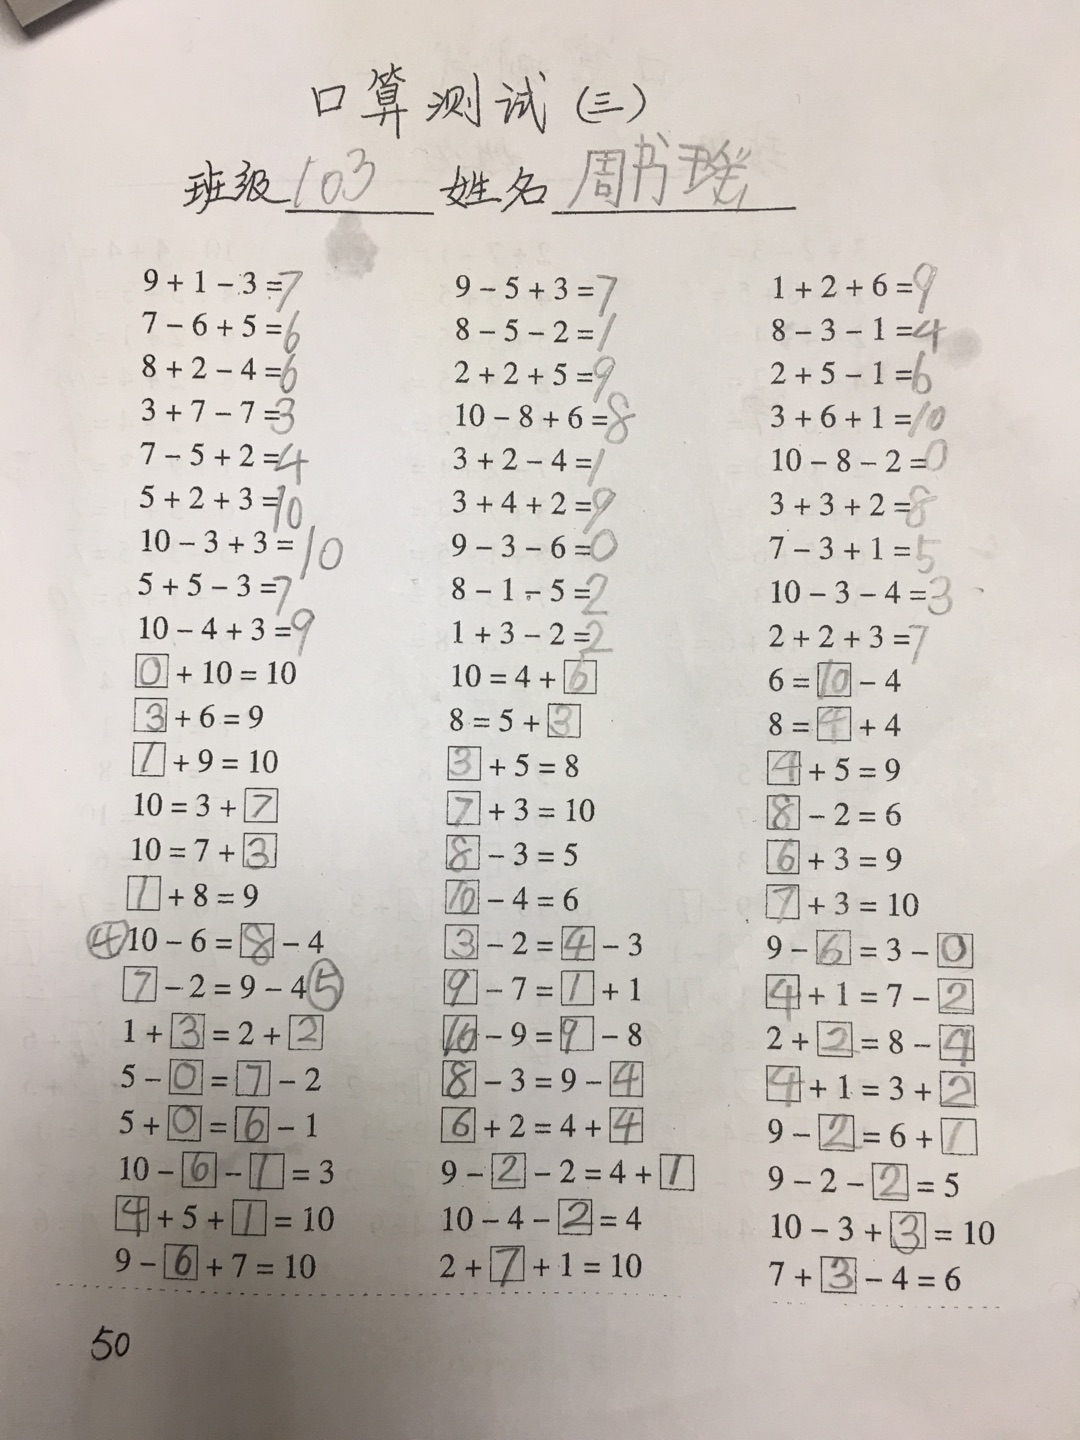 口算测试(三)
班级 103 姓名 周书瑶
9 + 1 − 3 = 7
7 − 6 + 5 = 6
8 + 2 − 4 = 6
3 + 7 − 7 = 3
7 − 5 + 2 = 4
5 + 2 + 3 = 10
10 − 3 + 3 = 10
5 + 5 − 3 = 7
10 − 4 + 3 = 9
0 + 10 = 10
3 + 6 = 9
1 + 9 = 10
10 = 3 + 7
10 = 7 + 3
1 + 8 = 9
④ 10 − 6 = 8 − 4
7 − 2 = 9 − 4 ⑤
1 + 3 = 2 + 2
5 − 0 = 7 − 2
5 + 0 = 6 − 1
10 − 6 − 1 = 3
4 + 5 + 1 = 10
9 − 6 + 7 = 10
9 − 5 + 3 = 7
8 − 5 − 2 = 1
2 + 2 + 5 = 9
10 − 8 + 6 = 8
3 + 2 − 4 = 1
3 + 4 + 2 = 9
9 − 3 − 6 = 0
8 − 1 − 5 = 2
1 + 3 − 2 = 2
10 = 4 + 6
8 = 5 + 3
3 + 5 = 8
7 + 3 = 10
8 − 3 = 5
10 − 4 = 6
3 − 2 = 4 − 3
9 − 7 = 1 + 1
10 − 9 = 9 − 8
8 − 3 = 9 − 4
6 + 2 = 4 + 4
9 − 2 − 2 = 4 + 1
10 − 4 − 2 = 4
2 + 7 + 1 = 10
1 + 2 + 6 = 9
8 − 3 − 1 = 4
2 + 5 − 1 = 6
3 + 6 + 1 = 10
10 − 8 − 2 = 0
3 + 3 + 2 = 8
7 − 3 + 1 = 5
10 − 3 − 4 = 3
2 + 2 + 3 = 7
6 = 10 − 4
8 = 4 + 4
4 + 5 = 9
8 − 2 = 6
6 + 3 = 9
7 + 3 = 10
9 − 6 = 3 − 0
4 + 1 = 7 − 2
2 + 2 = 8 − 4
4 + 1 = 3 + 2
9 − 2 = 6 + 1
9 − 2 − 2 = 5
10 − 3 + 3 = 10
7 + 3 − 4 = 6
50